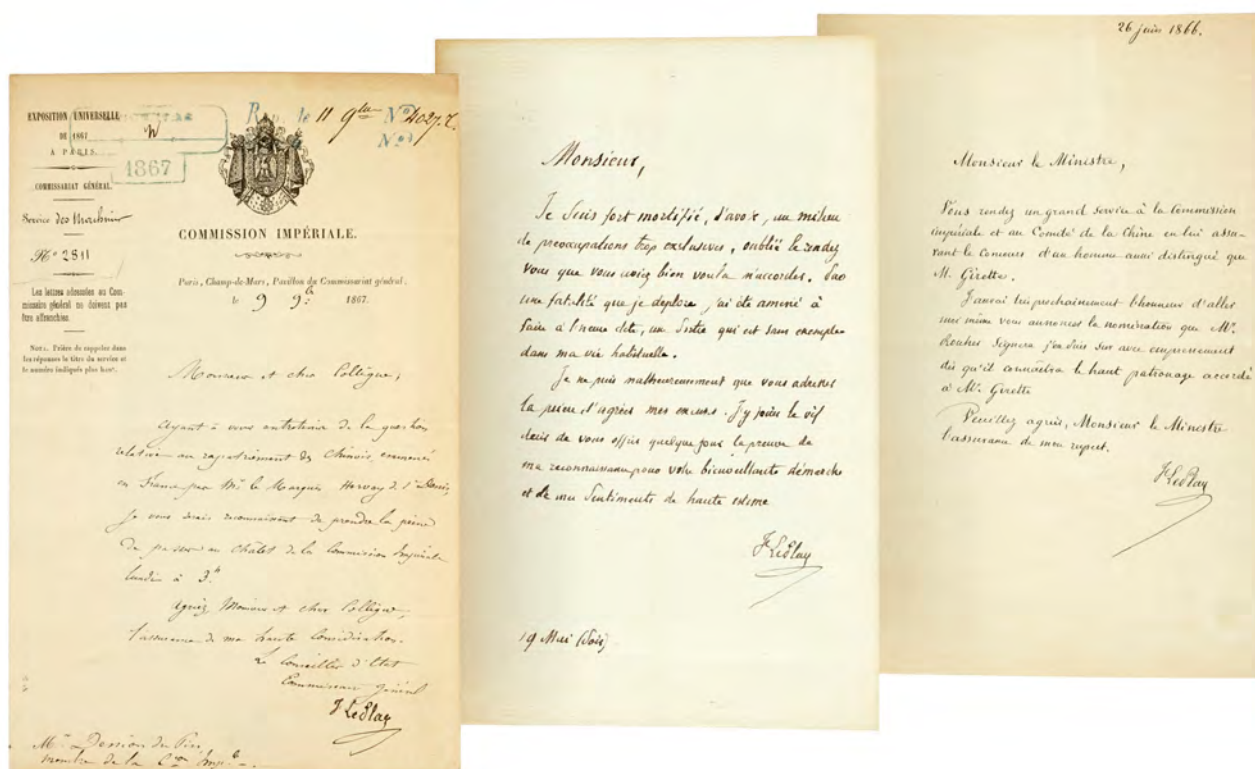 EXPOSITION UNIVERSELLE
DE 1867
A PARIS.
1867
COMMISSARIAT GÉNÉRAL.
Service des Machines
No 2811
Les lettres adressées au Com-
missaire général ne doivent pas
être affranchies.
NOTA. Prière de rappeler dans
les réponses le titre du service et
le numéro indiqués plus haut.
Rép. le 11 9bre No 4027.
No
COMMISSION IMPÉRIALE.
Paris, Champ-de-Mars, Pavillon du Commissariat général,
le 9 9b 1867.
Monsieur et cher Collègue,
Ayant à vous entretenir de la question
relative au rapatriement des Chinois, emmenés
en France par Mr le Marquis Hervey de St Denis,
je vous serais reconnaissant de prendre la peine
de passer au Châlet de la Commission Impériale
lundi à 3h
Agréez Monsieur et cher Collègue,
l'assurance de ma haute Considération.
Le Conseiller d'Etat
Commissaire général
F LePlay
Mr
membre de la Con Imple
Monsieur,
Je suis fort mortifié, d'avoir, au milieu
de préoccupations trop exclusives, oublié le rendez
vous que vous aviez bien voulu m'accorder. Par
une fatalité que je déplore j'ai été amené à
faire à l'heure dite, un qui est sans exemple
dans ma vie habituelle.
Je ne puis malheureusement que vous adresser
la prière d'agréer mes excuses. J'y joins le vif
désir de vous offrir quelque jour la preuve de
ma reconnaissance pour votre bienveillante démarche
et de mes Sentiments de haute estime
F LePlay
19 Mai (Soir)
26 juin 1866.
Monsieur le Ministre,
Vous rendez un grand service à la Commission
impériale et au Comité de la Chine en lui assu-
rant le Concours d'un homme aussi distingué que
M. Girette.
J'aurai très prochainement l'honneur d'aller
moi même vous annoncer la nomination que Mr.
Rouher Signera j'en Suis Sur avec empressement
dès qu'il connaîtra le haut patronage accordé
à Mr. Girette
Veuillez agréer, Monsieur le Ministre
l'assurance de mon respect.
F LePlay